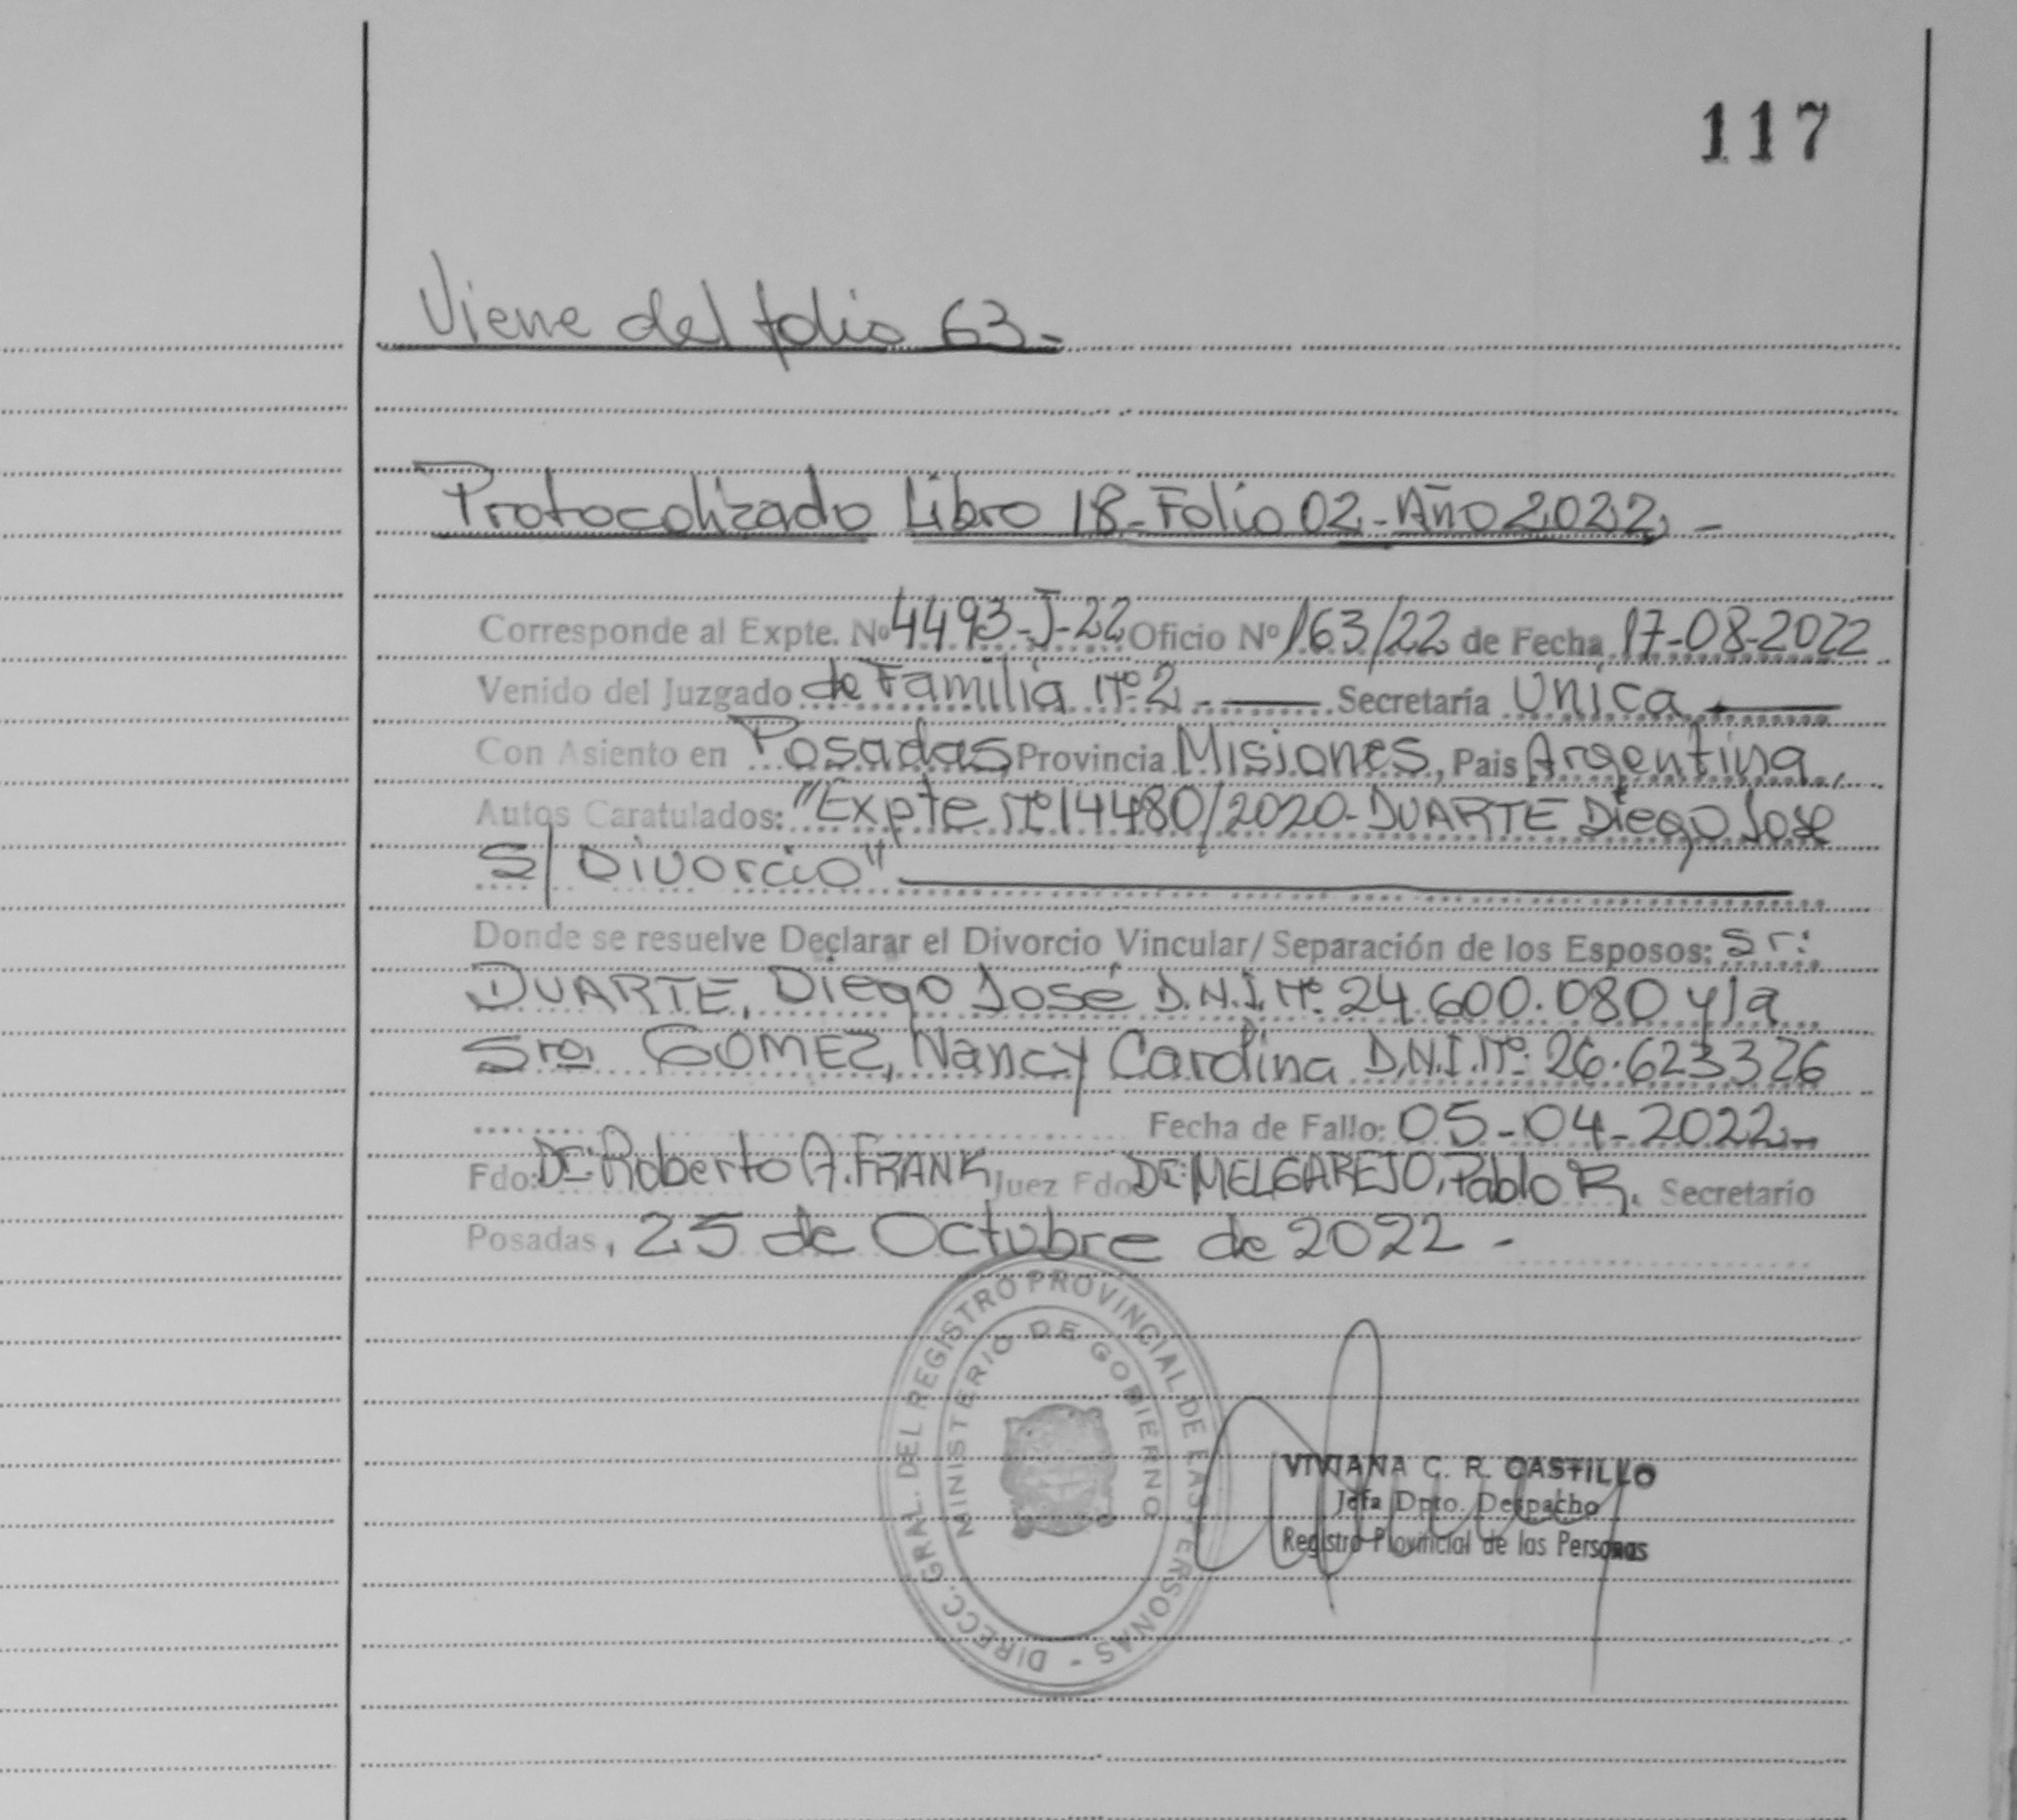 117
Viene del folio 63-
Protocolizado Libro 18-Folio 02-Año 2022,-
Corresponde al Expte. Nº 4493-J-22 Oficio Nº 163/22 de Fecha 17-08-2022
Venido del Juzgado de Familia Nº 2.- Secretaría Unica
Con Asiento en Posadas, Provincia Misiones, Pais Argentina,
Autos Caratulados: "Expte Nº 14480/2020-DUARTE Diego Jose
S/ Divorcio"
Donde se resuelve Declarar el Divorcio Vincular/Separación de los Esposos: Sr:
DUARTE, Diego José D.N.I. Nº. 24.600.080 y la
Sra. GOMEZ, Nancy Carolina D.N.I. Nº: 26.623326
Fecha de Fallo: 05-04-2022.-
Fdo: Dr: Roberto A. FRANK Juez Fdo Dr: MELGAREJO, Pablo R. Secretario
Posadas, 25 de Octubre de 2022-
DIRECC. GRAL. DEL REGISTRO PROVINCIAL DE LAS PERSONAS -
MINISTERIO DE GOBIERNO
VIVIANA C. R. CASTILLO
Jefa Dpto. Despacho
Registro Provincial de las Personas